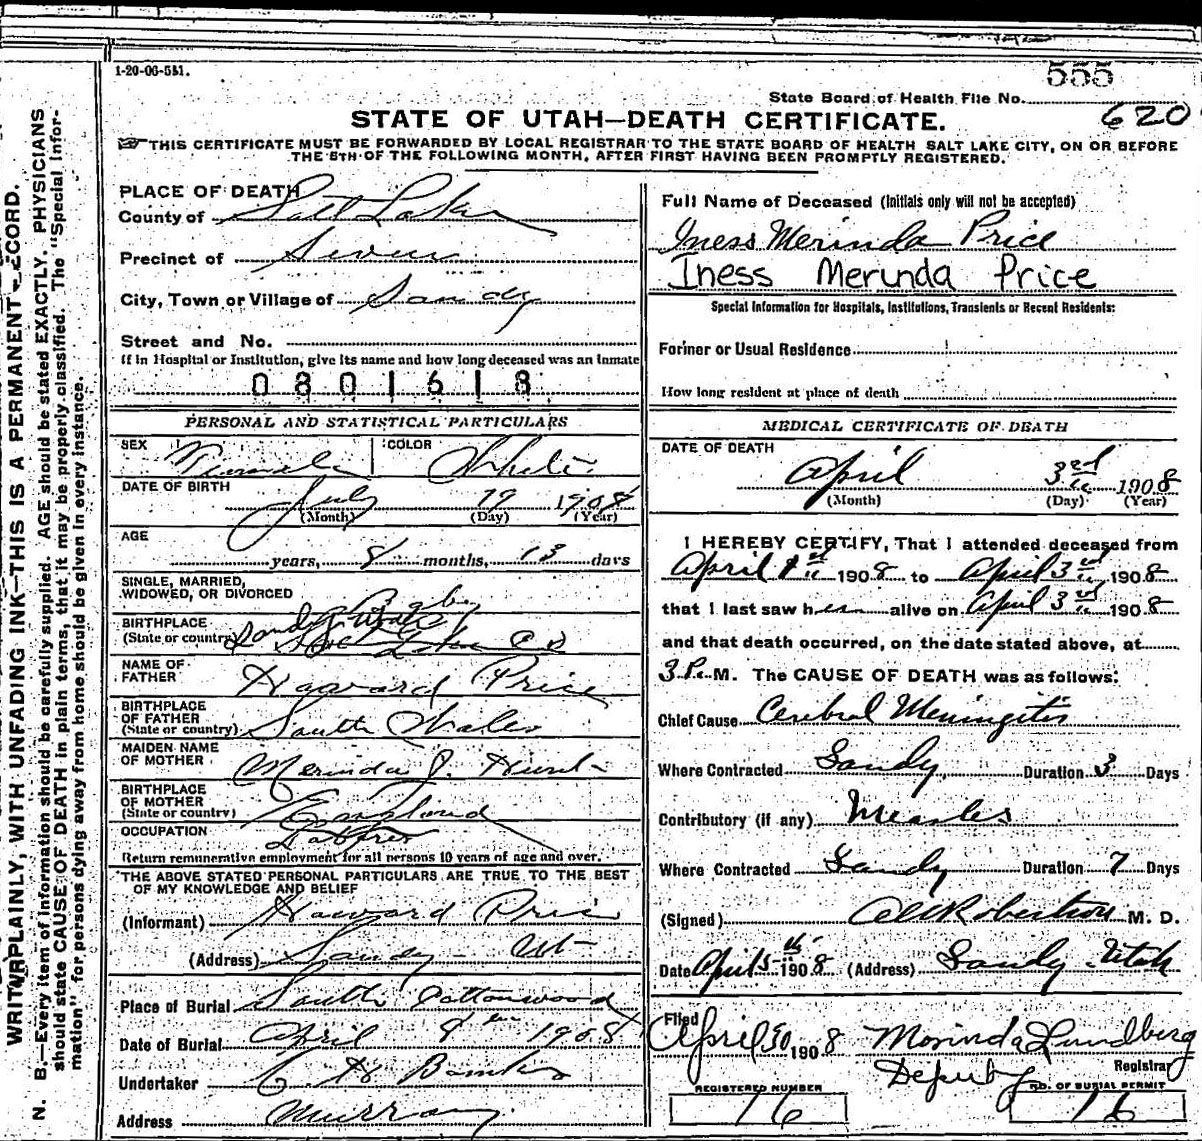 1-20-06-5M.
555
State Board of Health File No.
620
STATE OF UTAH—DEATH CERTIFICATE.
THIS CERTIFICATE MUST BE FORWARDED BY LOCAL REGISTRAR TO THE STATE BOARD OF HEALTH SALT LAKE CITY, ON OR BEFORE
THE 5TH OF THE FOLLOWING MONTH, AFTER FIRST HAVING BEEN PROMPTLY REGISTERED.
PLACE OF DEATH
County of Salt Lake
Precinct of Seven
City, Town or Village of Sandy
Street and No.
If in Hospital or Institution, give its name and how long deceased was an inmate
0801618
PERSONAL AND STATISTICAL PARTICULARS
SEX Female COLOR White
DATE OF BIRTH July 19
(Month) (Day) (Year)
AGE
years, 8 months, 13 days
SINGLE, MARRIED,
WIDOWED, OR DIVORCED
BIRTHPLACE
(State or country) Sandy
Salt Lake Co
NAME OF
FATHER Howard Price
BIRTHPLACE
OF FATHER
(State or country) South Wales
MAIDEN NAME
OF MOTHER Merinda J. Hunt
BIRTHPLACE
OF MOTHER
(State or country) England
OCCUPATION
Return remunerative employment for all persons 10 years of age and over.
THE ABOVE STATED PERSONAL PARTICULARS ARE TRUE TO THE BEST
OF MY KNOWLEDGE AND BELIEF
(Informant) Howard Price
(Address) Sandy - Ut-
Place of Burial South Cottonwood
Date of Burial April 1908
Undertaker Banks
Address Murray.
Full Name of Deceased (Initials only will not be accepted)
Iness Merinda Price
Iness Merinda Price
Special Information for Hospitals, Institutions, Transients or Recent Residents:
Former or Usual Residence
How long resident at place of death
MEDICAL CERTIFICATE OF DEATH
DATE OF DEATH
April 3rd 1908
(Month) (Day) (Year)
I HEREBY CERTIFY, That I attended deceased from
April 1st 1908 to April 3rd 1908
that I last saw her alive on April 3rd 1908
and that death occurred, on the date stated above, at
3 P. M. The CAUSE OF DEATH was as follows:
Chief Cause Cerebral Meningitis
Where Contracted Sandy, Duration 3 Days
Contributory (if any) Measles
Where Contracted Sandy Duration 7 Days
(Signed) Robertson M. D.
Date April 5th 1908 (Address) Sandy Utah
Filed
April 30 1908 Morinda Lundberg
Deputy Registrar
REGISTERED NUMBER
16
NO. OF BURIAL PERMIT
16
WRITE PLAINLY, WITH UNFADING INK—THIS IS A PERMANENT RECORD.
N. B.—Every item of information should be carefully supplied. AGE should be stated EXACTLY. PHYSICIANS
should state CAUSE OF DEATH in plain terms, that it may be properly classified. The "Special Infor-
mation" for persons dying away from home should be given in every instance.